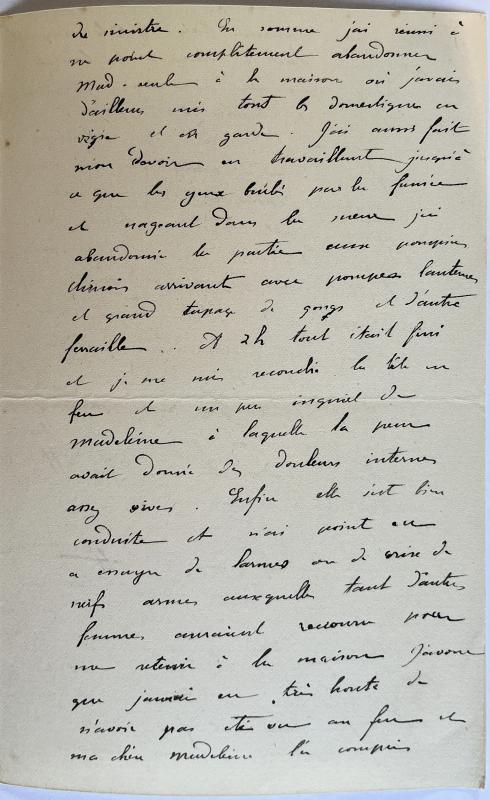 de sinistre. En somme j'ai réussi à
ne point complètement abandonner
Mad. seule à la maison où j'avais
d'ailleurs mis tout les domestiques en
vigie et en garde. J'ai aussi fait
mon devoir en travaillant jusqu'à
ce que les yeux brûlés par la fumée
et nageant dans la sueur j'ai
abandonné la partie aux pompiers
chinois arrivant avec pompes lanternes
et grand tapage de gongs et d'autre
ferraille.. A 2h tout était fini
et je me suis recouché la tête en
feu et un peu inquiet de
Madeleine à laquelle la peur
avait donné des douleurs internes
assez vives. Enfin elle s'est bien
conduite et n'ai point eu
a essuyer de larmes ou de crise de
nerfs armes auxquelles tant d'autres
femmes auraient recouru pour
me retenir à la maison J'avoue
que j'aurai eu très honte de
n'avoir pas été vu au feu et
ma chère Madeleine l'a compris